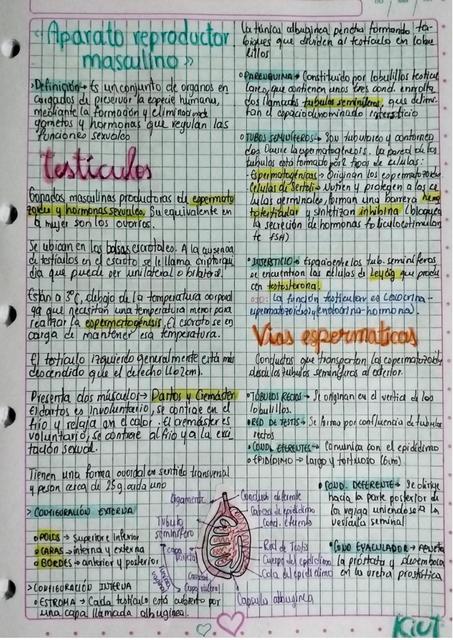 "Aparato reproductor
masculino"
>Definición→ Es un conjunto de organos en
cargados de preservar la especie humana,
mediante la formación y eliminación de
gametos y hormonas que regulan las
funciones sexuales
Testículos
Gonadas masculinas productoras de espermato
zoides y hormonas sexuales. Su equivalente en
la mujer son los ovarios.
Se ubican en las bolsas escrotales. A la ausencia
de testículos en el escroto se le llama criptorqui
dia que puede ser unilateral o bilateral.
Están a 3°C, debajo de la temperatura corporal
ya que necesitan una temperatura menor para
realizar la espermatogénesis. El escroto se en
carga de mantener esa temperatura.
El testículo izquierdo generalmente está más
descendido que el derecho (1cm).
Presenta dos músculos→ Dartos y Cremáster
El dartos es involuntario, se contrae en el
frío y relaja en el calor. El cremáster es
voluntario, se contrae al frío y a la exci
tación sexual.
Tienen una forma ovoidal en sentido transversal
y pesan cerca de 25g cada uno
> CONFIGURACIÓN EXTERNA
• POLOS→ Superior e inferior
• CARAS→ interna y externa
• BORDES→ anterior y posterior
> CONFIGURACIÓN INTERNA
• ESTROMA→ Cada testículo está cubierto por
una capa llamada albugínea.
la túnica albugínea penetra formando ta-
biques que dividen al testículo en lobu
lillos
• PARENQUIMA→ Constituido por lobulillos testicu
lares, que contienen unos tres cond. enrolla
dos llamados tubulos seminiferos, que delimi
tan el espacio denominado intersticio
• TUBOS SEMINÍFEROS→ Son tubulares y contornea
dos. Ocurre la espermatogénesis. La pared de los
tubulos está formada por 2 tipos de celulas:
Espermatogénicas→ Originan los espermatozoides
Celulas de Sertoli→ Nutren y protegen a las ce
lulas germinales, forman una barrera hemo
testicular y sintetizan inhibina (bloquea
la secreción de hormonas foliculoestimulan
te FSH)
• INTERSTICIO→ Espacio entre los tub. seminíferos,
se encuentran las células de Leydig que produ
cen testosterona.
La función testicular es exocrina-
espermatozoide y endocrina-hormona.
Vías espermáticas
Conductos que transportan los espermatozoides
desde los tubulos seminiferos al exterior.
• TÚBULOS RECTOS→ Se originan en el vertice de los
lobulillos.
• RED DE TESTIS→ Se forma por confluencia de tubulos
rectos
• COND. EFERENTES→ Comunica con el epidídimo
• EPIDÍDIMO→ largo y tortuoso (6m)
• COND. DEFERENTE→ Se dirige
hacia la parte posterior de
la vejiga uniendose a la
vesícula seminal
• COND EYACULADOR→
la próstata y desemboca
en la uretra prostática
Ligamento
Túbulo
seminífero
Conducto deferente
Cabeza de epidídimo
Cond. Eferente
Red de Testis
Cuerpo del epidídimo
Cola del epidídimo
Capsula albugínea